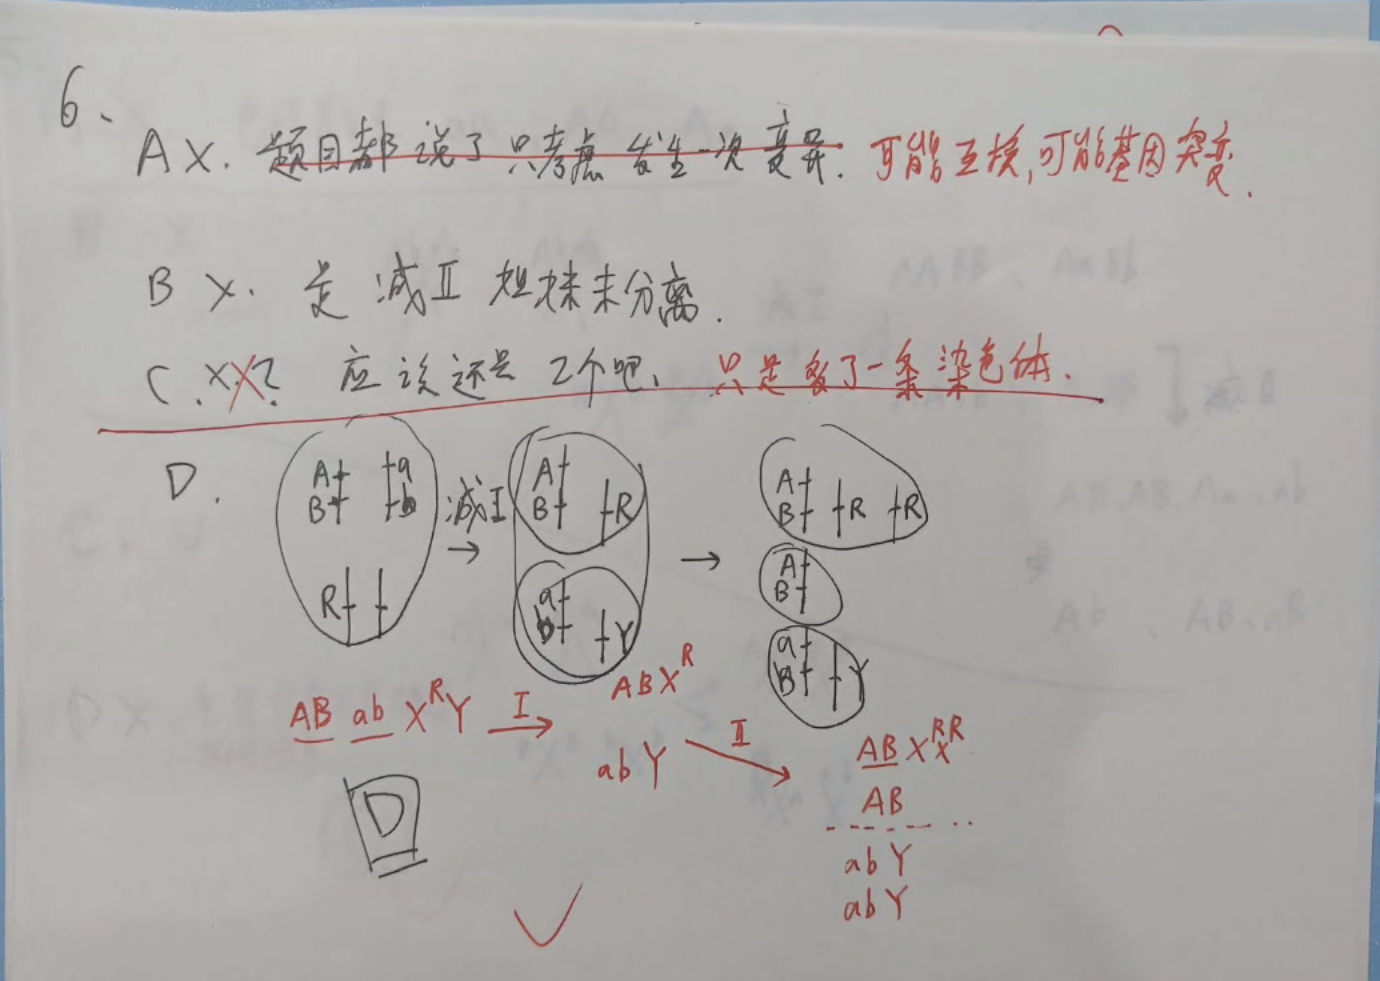 6、
A X. 题目都说了只考虑发生一次变异. 可能互换,可能基因突变.
B X. 是减Ⅱ姐妹未分离.
C. X X? 应该还是2个吧、只是多了一条染色体.
D.
A B a b R
减Ⅰ →
A B R
a b Y
→
A B R R
A B
a B Y
AB ab XᴿY Ⅰ→ ABXᴿ
abY Ⅱ→
AB XᴿXᴿ
AB
abY
abY
D